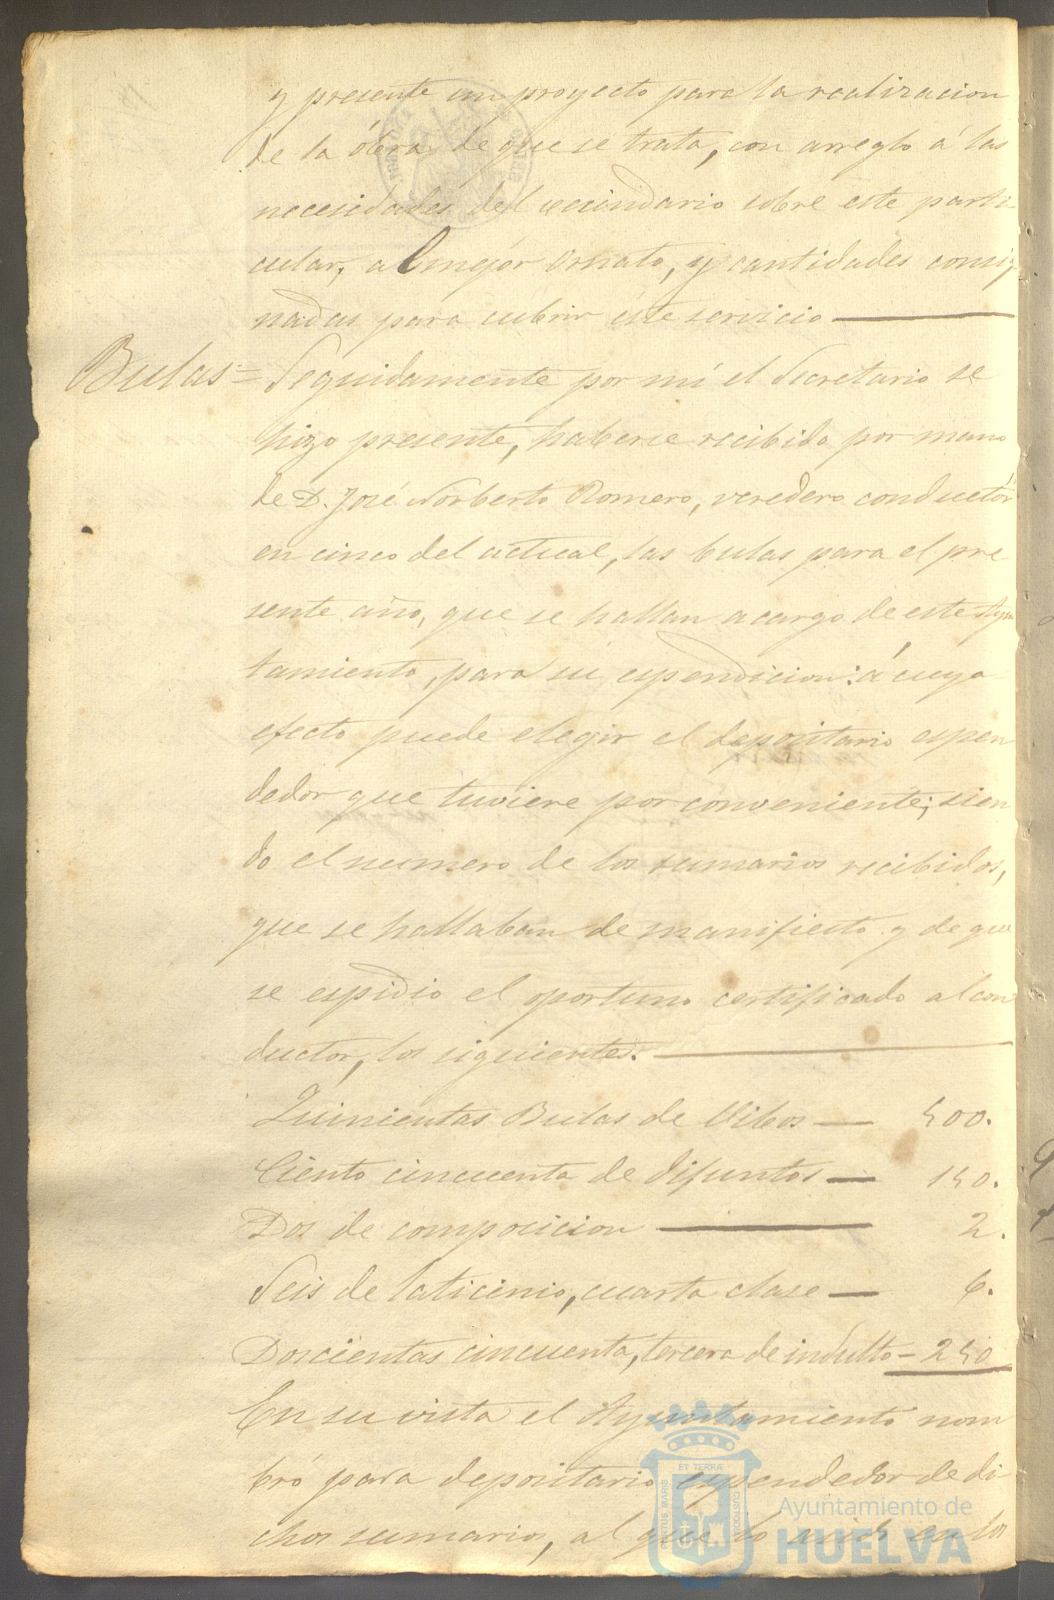 y presente un proyecto para la realizacion
de la óbra de que se trata, con arreglo á las
necesidades del vecindario sobre este parti-
cular, al mejór ornato, y cantidades consig-
nadas para cubrir éste servicio
Bulas = Seguidamente por mí el Secretario se
hizo presente, haberse recibido por mano
de D. José Norberto Romero, veredero conductór
en cinco del actual, las bulas para el pre
sente año, que se hallan a cargo de este Ayun
tamiento, para su espendicion: á cuyo
efecto puede elegir el depositario espen
dedor que tuviere por conveniente; sien
do el numero de los sumarios recibidos,
que se hallaban de manifiesto y de que
se espidio el oportuno certificado al con
ductor, los siguientes.
Quinientas Bulas de Vibos — 500.
Ciento cincuenta de difuntos — 150.
Dos de composicion — 2.
Seis de laticinio, cuarta clase — 6.
Doscientas cincuenta, tercera de indulto — 250
En su vista el Ayuntamiento nom
bró para depositario espendedor de di-
chos sumarios, al que lo en los
PORTUS MARIS ET TERRÆ CUSTODIA
Ayuntamiento de
HUELVA